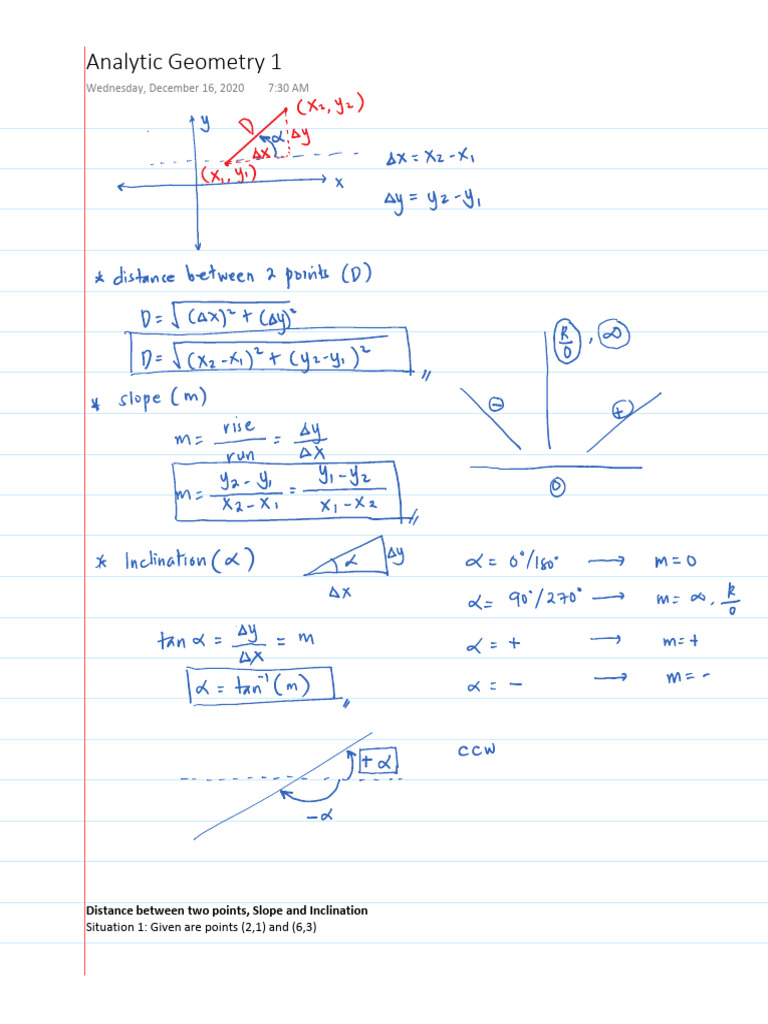 Analytic Geometry 1
Wednesday, December 16, 2020 7:30 AM
y
D
(x2, y2)
α
Δy
Δx
(x1, y1)
x
Δx = x2 - x1
Δy = y2 - y1
* distance between 2 points (D)
D = √(Δx)² + (Δy)²
D = √(x2 - x1)² + (y2 - y1)²
k/0 , ∞
- +
0
* slope (m)
m = rise/run = Δy/Δx
m = y2 - y1/x2 - x1 = y1 - y2/x1 - x2
* Inclination (α)
α
Δy
Δx
α = 0°/180° → m = 0
α = 90°/270° → m = ∞, k/0
α = + → m = +
α = - → m = -
tan α = Δy/Δx = m
α = tan⁻¹ (m)
+ α
- α
CCW
Distance between two points, Slope and Inclination
Situation 1: Given are points (2,1) and (6,3)